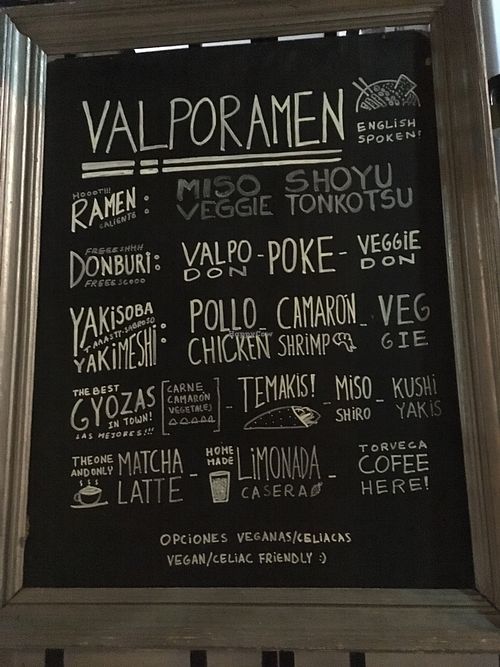 VALPORAMEN
ENGLISH
SPOKEN!
HOOOT!!!
RAMEN:
CALIENTE
MISO SHOYU
VEGGIE TONKOTSU
FREEESHHH
DONBURI:
FREEESCOOO
VALPO DON - POKE - VEGGIE DON
YAKISOBA
YAKIMESHI:
POLLO - CAMARÓN - VEG
CHICKEN SHRIMP GIE
THE BEST
GYOZAS
IN TOWN!
LAS MEJORES!!!
CARNE
CAMARÓN
VEGETALES
- TEMAKIS! - MISO SHIRO - KUSHI YAKIS
THE ONE
AND ONLY
MATCHA
LATTE -
HOME
MADE
LIMONADA
CASERA -
TORVECA
COFEE
HERE!
OPCIONES VEGANAS/CELIACAS
VEGAN/CELIAC FRIENDLY :)
HappyCow